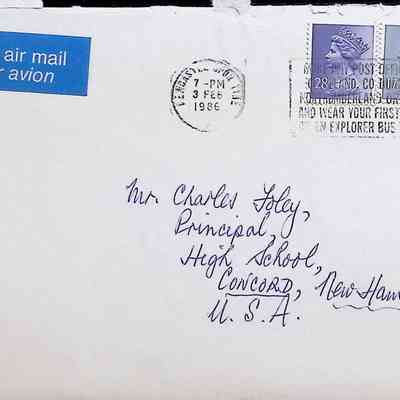 air mail
avion
NEWCASTLE UPON TYNE
7-PM
3 FEB
1986
POST
AND WEAR YOUR FIRST
EXPLORER BUS
Mr. Charles Foley,
Principal,
High School,
CONCORD, New Ham
U.S.A.